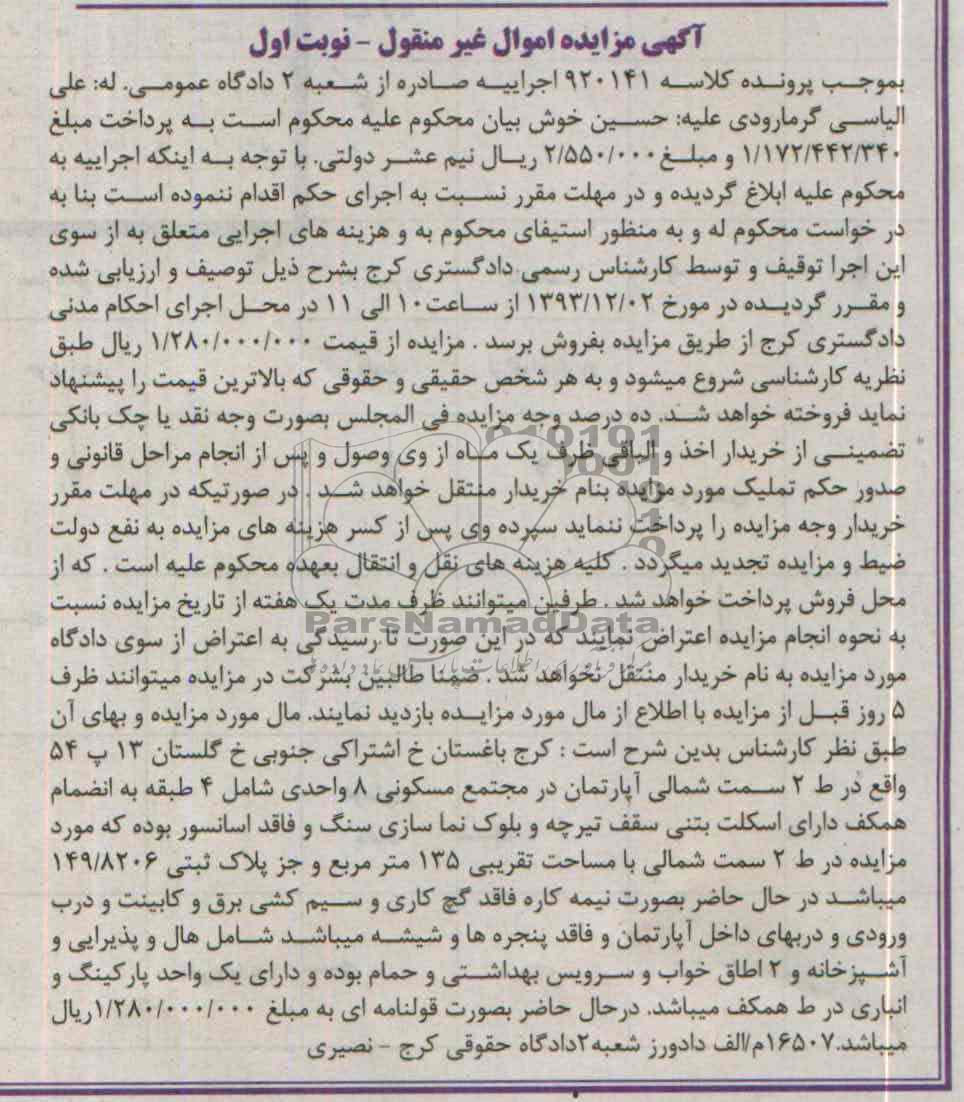 آگهی مزایده اموال غیر منقول - نوبت اول
بموجب پرونده کلاسه ۹۲۰۱۴۱ اجراییه صادره از شعبه ۲ دادگاه عمومی. له: علی
الیاسی گرمارودی علیه: حسین خوش بیان محکوم علیه محکوم است به پرداخت مبلغ
۱/۱۷۲/۴۴۲/۳۴۰ و مبلغ ۲/۵۵۰/۰۰۰ ریال نیم عشر دولتی. با توجه به اینکه اجراییه به
محکوم علیه ابلاغ گردیده و در مهلت مقرر نسبت به اجرای حکم اقدام ننموده است بنا به
در خواست محکوم له و به منظور استیفای محکوم به و هزینه های اجرایی متعلق به از سوی
این اجرا توقیف و توسط کارشناس رسمی دادگستری کرج بشرح ذیل توصیف و ارزیابی شده
و مقرر گردیده در مورخ ۱۳۹۳/۱۲/۰۲ از ساعت ۱۰ الی ۱۱ در محل اجرای احکام مدنی
دادگستری کرج از طریق مزایده بفروش برسد . مزایده از قیمت ۱/۲۸۰/۰۰۰/۰۰۰ ریال طبق
نظریه کارشناسی شروع میشود و به هر شخص حقیقی و حقوقی که بالاترین قیمت را پیشنهاد
نماید فروخته خواهد شد. ده درصد وجه مزایده فی المجلس بصورت وجه نقد یا چک بانکی
تضمینی از خریدار اخذ و الباقی ظرف یک ماه از وی وصول و پس از انجام مراحل قانونی و
صدور حکم تملیک مورد مزایده بنام خریدار منتقل خواهد شد . در صورتیکه در مهلت مقرر
خریدار وجه مزایده را پرداخت ننماید سپرده وی پس از کسر هزینه های مزایده به نفع دولت
ضبط و مزایده تجدید میگردد . کلیه هزینه های نقل و انتقال بعهده محکوم علیه است . که از
محل فروش پرداخت خواهد شد . طرفین میتوانند ظرف مدت یک هفته از تاریخ مزایده نسبت
ParsNamadData
به نحوه انجام مزایده اعتراض نمایند که در این صورت تا رسیدگی به اعتراض از سوی دادگاه
مورد مزایده به نام خریدار منتقل نخواهد شد . ضمنا طالبین بشرکت در مزایده میتوانند ظرف
۵ روز قبل از مزایده با اطلاع از مال مورد مزایده بازدید نمایند. مال مورد مزایده و بهای آن
طبق نظر کارشناس بدین شرح است : کرج باغستان خ اشتراکی جنوبی خ گلستان ۱۳ پ ۵۴
واقع در ط ۲ سمت شمالی آپارتمان در مجتمع مسکونی ۸ واحدی شامل ۴ طبقه به انضمام
همکف دارای اسکلت بتنی سقف تیرچه و بلوک نما سازی سنگ و فاقد اسانسور بوده که مورد
مزایده در ط ۲ سمت شمالی با مساحت تقریبی ۱۳۵ متر مربع و جز پلاک ثبتی ۱۴۹/۸۲۰۶
میباشد در حال حاضر بصورت نیمه کاره فاقد گچ کاری و سیم کشی برق و کابینت و درب
ورودی و دربهای داخل آپارتمان و فاقد پنجره ها و شیشه میباشد شامل هال و پذیرایی و
آشپزخانه و ۲ اطاق خواب و سرویس بهداشتی و حمام بوده و دارای یک واحد پارکینگ و
انباری در ط همکف میباشد. درحال حاضر بصورت قولنامه ای به مبلغ ۱/۲۸۰/۰۰۰/۰۰۰ریال
میباشد.۱۶۵۰۷م/الف دادورز شعبه۲دادگاه حقوقی کرج - نصیری